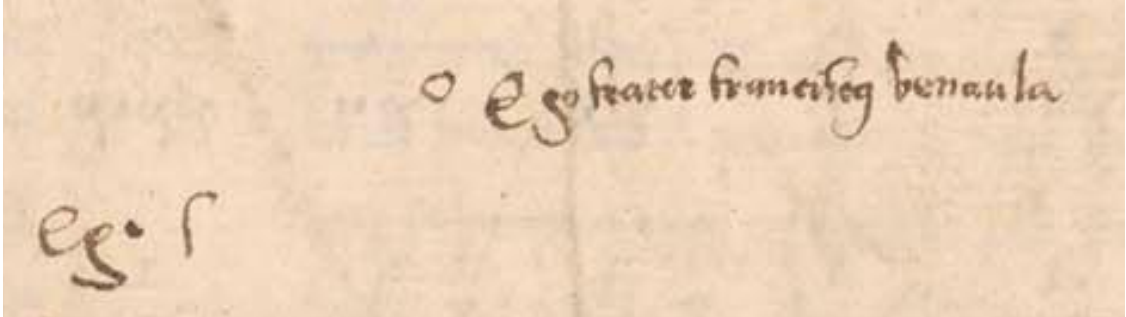 o Ego frater franciscꝯ benaula
Ego f